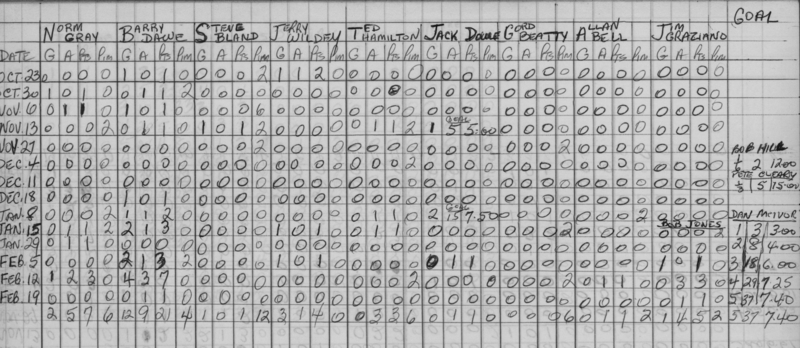 GOAL
NORM GRAY BARRY DAWE STEVE BLAND JERRY WILDEY TED HAMILTON JACK GORD BEATTY ALLAN BELL JIM GRAZIANO
DATE G A Pts Pim G A Pts Pim G A Pts Pim G A Pts Pim G A Pts Pim G A Pts Pim G A Pts Pim G A Pts Pim G A Pts Pim
OCT.23 0 0 0 0 1 0 1 0 0 0 0 2 1 1 2 0 0 0 0 0 0 0 0 0 0 0 0 0 0 0 0 0 0 0 0 0
OCT.30 1 0 1 0 0 1 1 2 0 0 0 0 0 0 0 0 0 0 0 0 0 0 0 0 0 0 0 0 0 0 0 0 0 0 0 0
NOV.6 0 1 1 0 1 0 1 0 0 0 0 6 0 0 0 0 0 0 0 0 0 0 0 0 0 0 0 0 0 0 0 0 0 0 0 0
GOAL
NOV.13 0 0 0 2 0 1 1 0 1 0 1 2 0 0 0 0 0 1 1 2 1 5 5:00 0 0 0 0 0 0 0 0 0 0 0 0
NOV 27 0 0 0 0 0 0 0 0 0 0 0 2 0 0 0 0 0 0 0 0 0 0 0 0 0 0 0 2 0 0 0 0 0 0 0 0 BOB HILL
DEC.4 0 0 0 0 0 0 0 0 0 0 0 0 0 0 0 0 0 0 0 2 0 0 0 0 0 0 0 0 0 0 0 0 0 0 0 0 2 12.00
PETE O'LEARY
DEC.11 0 0 0 0 0 0 0 0 0 0 0 0 0 0 0 0 0 0 0 0 0 0 0 0 0 0 0 0 0 0 0 0 0 0 0 0 5 15.00
DEC.18 0 0 0 0 1 0 1 0 0 0 0 0 0 0 0 0 0 0 0 0 0 0 0 0 0 0 0 0 0 0 0 0 0 0 0 0
GOAL
JAN.8 0 0 0 2 1 1 2 0 0 0 0 0 0 0 0 0 0 1 1 0 2 15 7.50 0 0 0 0 0 0 0 2 0 0 0 0 DAN McIVOR
BOB JONES
JAN.15 0 1 1 2 2 1 3 0 0 0 0 0 1 0 1 0 0 1 1 0 0 0 0 0 0 0 0 2 0 0 0 0 0 0 0 2 1 3 3.00
JAN.29 0 1 1 0 0 0 0 0 0 0 0 0 0 0 0 0 0 0 0 0 0 0 0 0 0 0 0 0 0 0 0 0 0 0 0 0 2 8 4.00
FEB.5 0 0 0 0 2 1 3 2 0 0 0 0 1 0 1 0 0 0 0 0 0 1 1 0 0 0 0 0 0 0 0 0 1 0 1 0 3 18 6.00
FEB.12 1 2 3 0 4 3 7 0 0 0 0 0 0 0 0 0 0 0 0 2 0 0 0 0 0 0 0 2 0 1 1 0 0 3 3 0 4 29 7.25
FEB.19 0 0 0 0 0 1 1 0 0 0 0 0 0 0 0 0 0 0 0 0 0 0 0 0 0 0 0 0 0 0 0 0 0 1 1 0 5 37 7.40
2 5 7 6 12 9 21 4 1 0 1 12 3 1 4 0 0 3 3 6 0 1 1 0 0 0 0 6 0 1 1 2 1 4 5 2 5 37 7.40